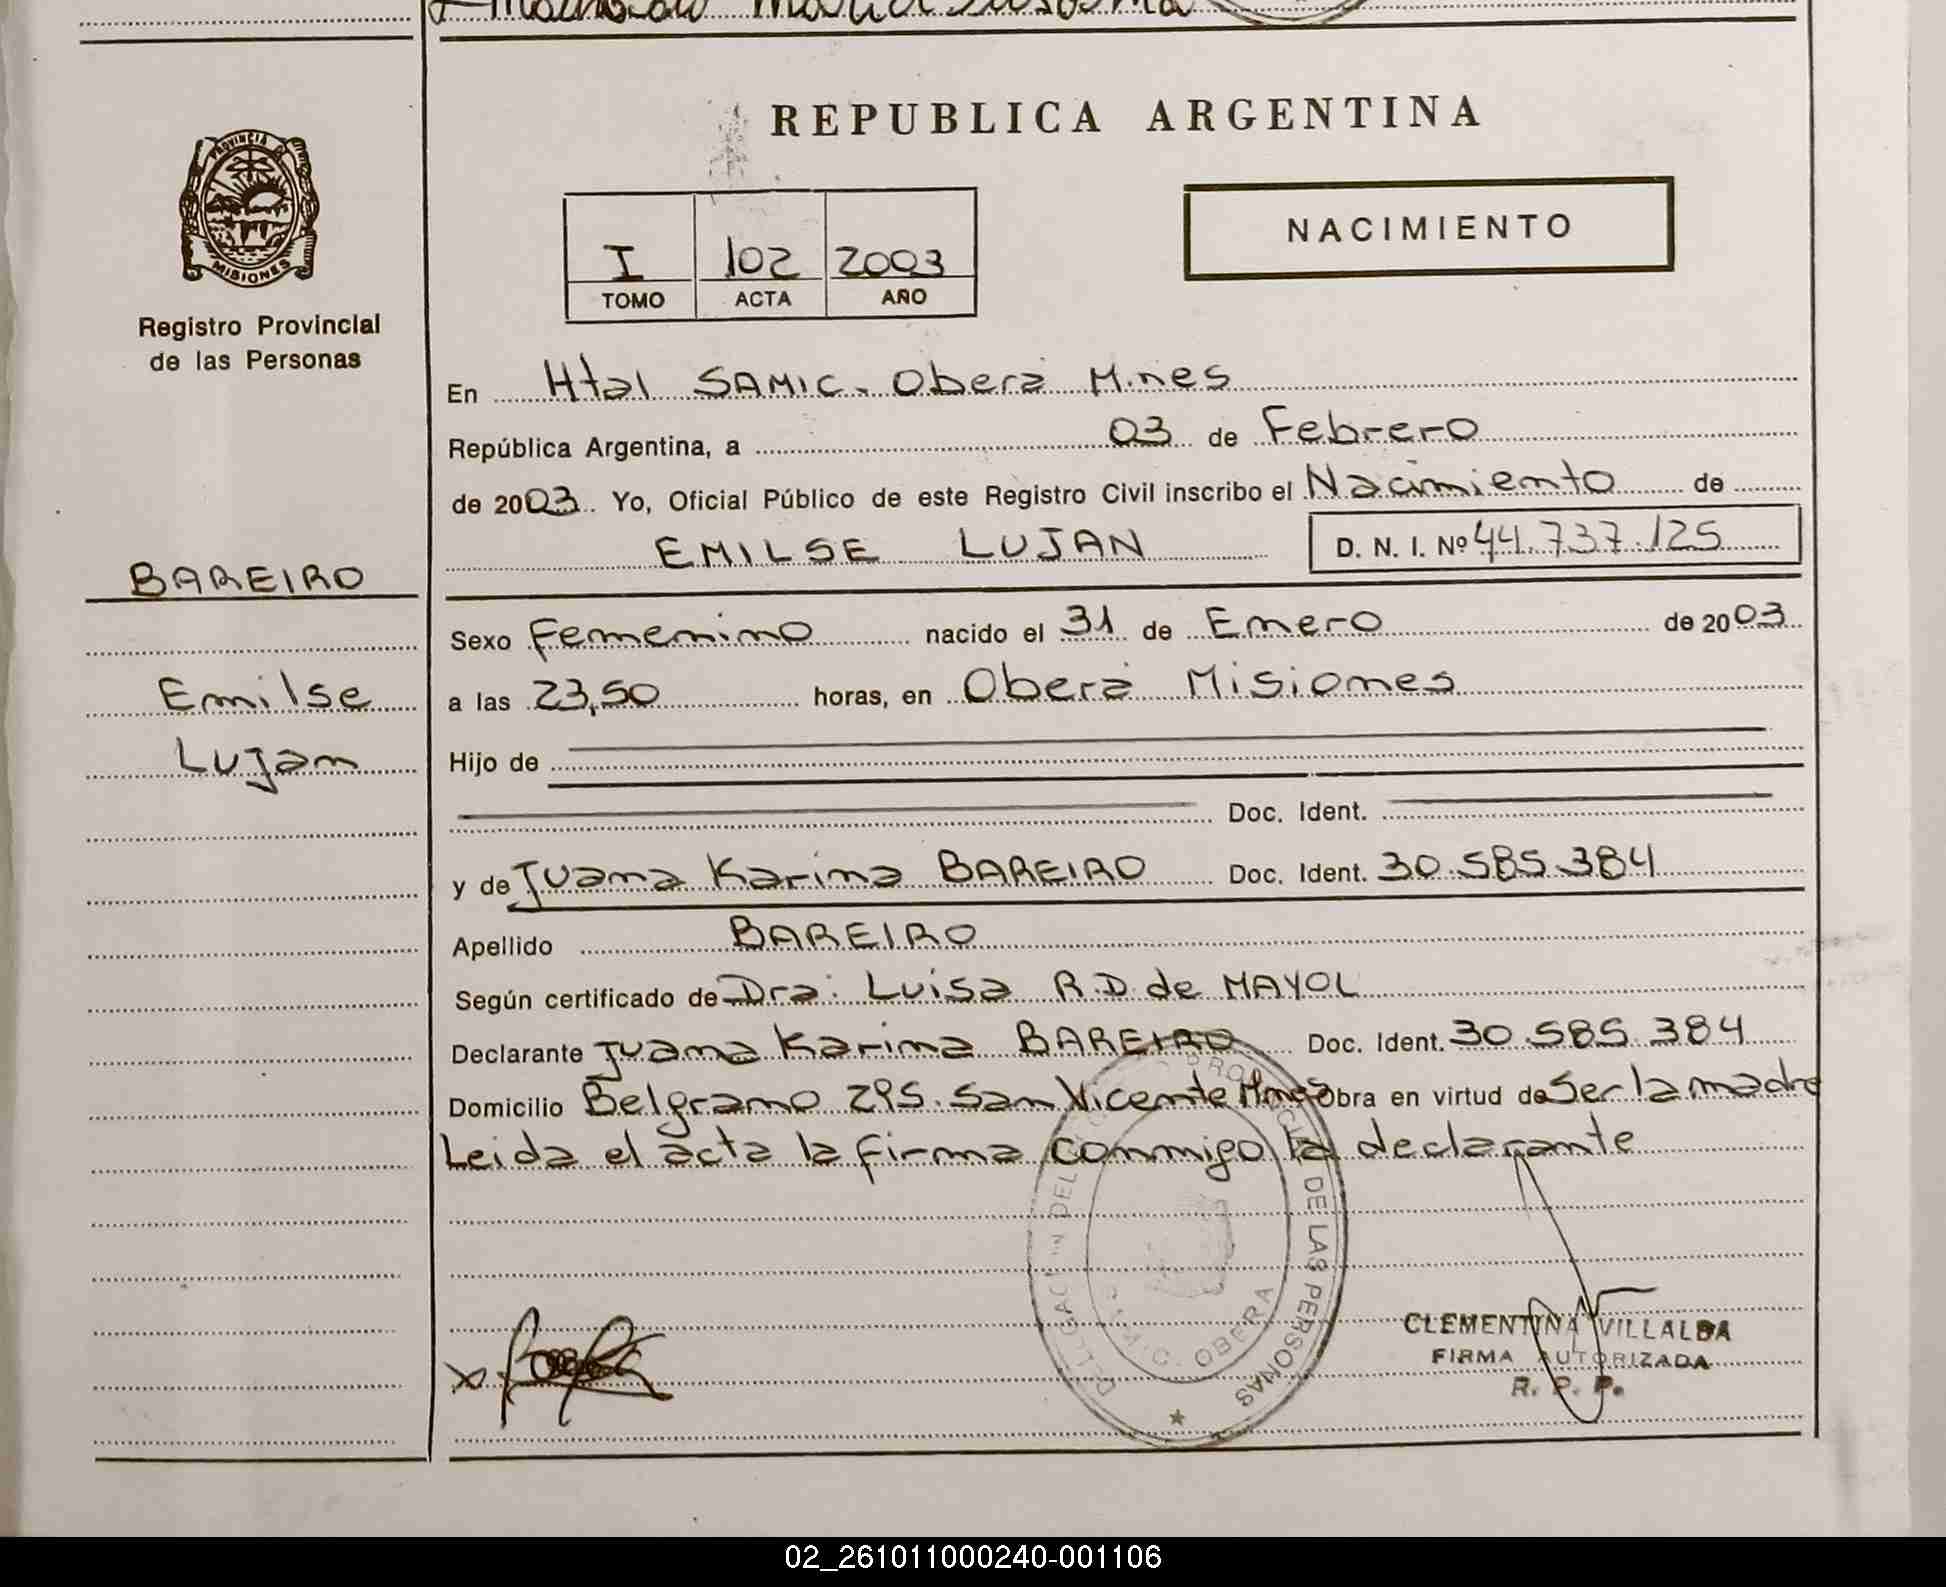 REPUBLICA ARGENTINA
PROVINCIA DE
MISIONES
Registro Provincial
de las Personas
NACIMIENTO
I 102 2003
TOMO ACTA AÑO
En Htal SAMIC. Oberá M.nes
República Argentina, a 03 de Febrero
de 2003 Yo, Oficial Público de este Registro Civil inscribo el Nacimiento de
EMILSE LUJAN D. N. I. Nº 44.737.125
BAREIRO
Emilse
Lujan
Sexo Femenino nacido el 31 de Enero de 2003
a las 23,50 horas, en Oberá Misiones
Hijo de
Doc. Ident.
y de Juana Karina BAREIRO Doc. Ident. 30.585.384
Apellido BAREIRO
Según certificado de Dra: Luisa R.D. de MAYOL
Declarante Juana Karina BAREIRO Doc. Ident. 30.585.384
Domicilio Belgrano 295. San Vicente Mnes Obra en virtud de Ser la madre
Leida el acta la firma conmigo la declarante
DE LAS PERSONAS
OBERA
CLEMENTINA VILLALBA
FIRMA AUTORIZADA
R. P. P.
02_261011000240-001106